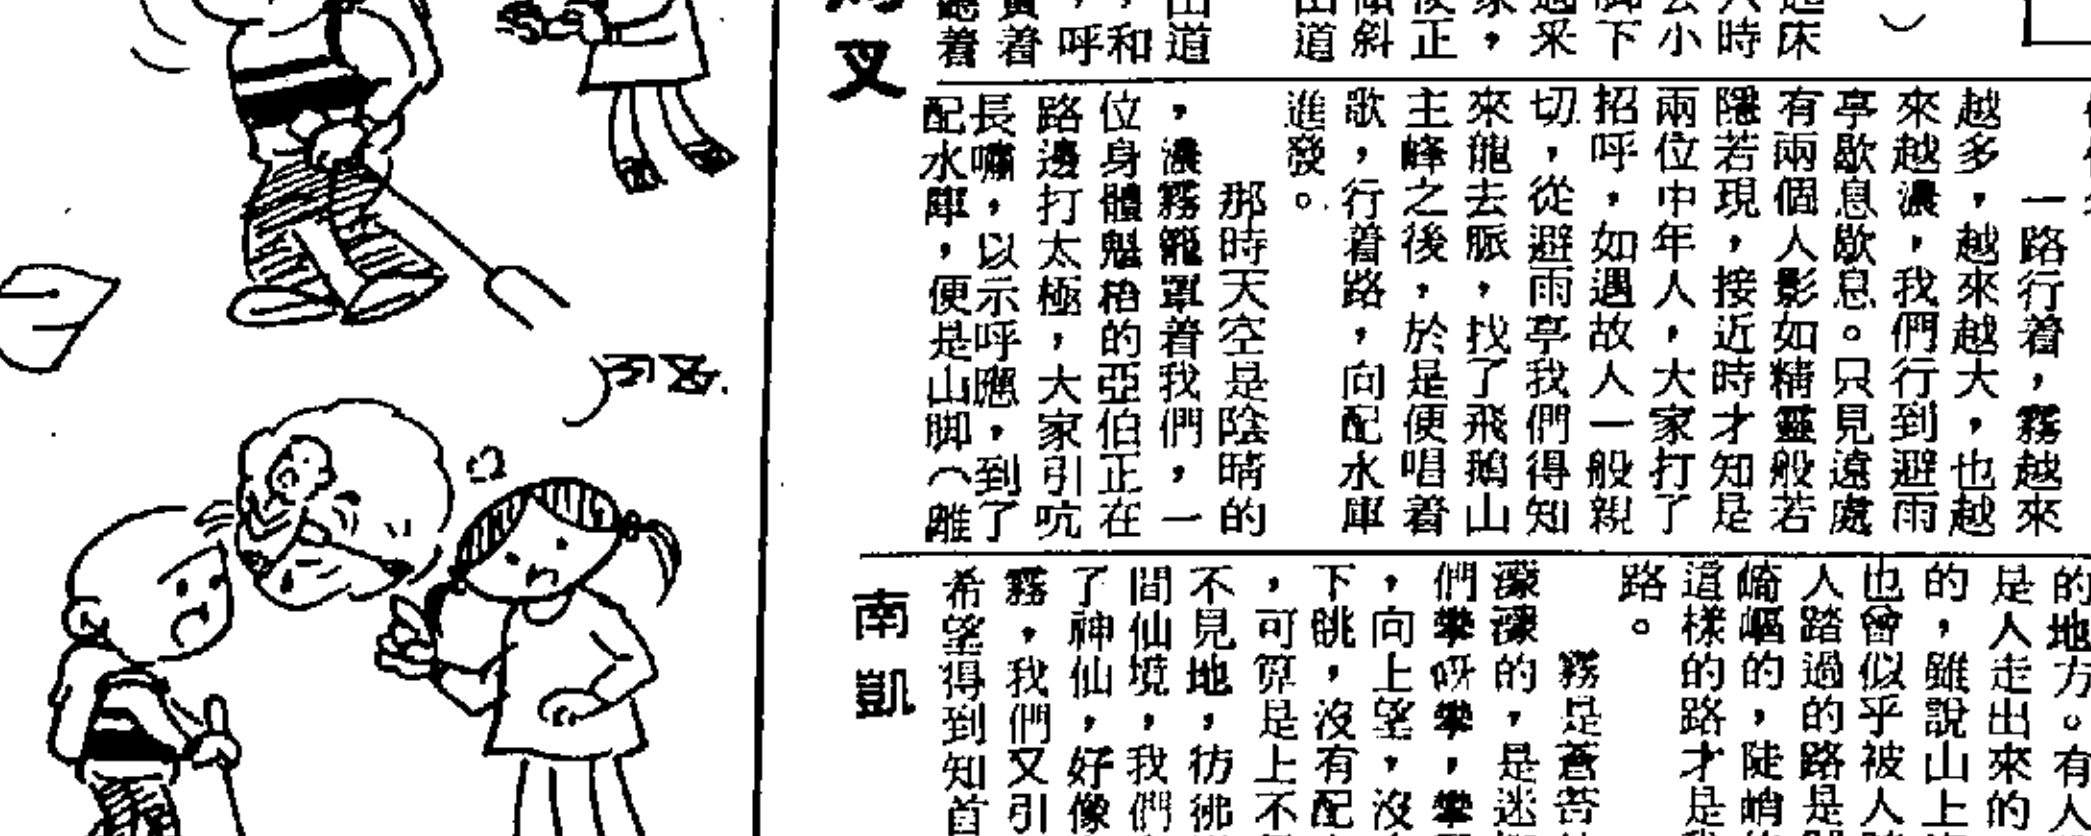 起床
六時
去小
脚下
過采
家，
後正
傾斜
山道
山道
，和
，呼
實着
聽着
叉
一路行着，霧越來
越多，越來越大，也越
來越濃，我們行到避雨
亭歇息歇息。只見遠處
有兩個人影如精靈般若
隱若現，接近時才知是
兩位中年人，大家打了
招呼，如遇故人一般親
切，從避雨亭我們得知
來龍去脈，找了飛鵝山
主峰之後，於是便唱着
歌，行着路，向配水庫
進發。
那時天空是陰晴的
，濃霧籠罩着我們，一
位身體魁梧的亞伯正在
路邊打太極，大家引吭
長嘯，以示呼應，到了
配水庫，便是山脚（離
的地方。有人
是人走出來的
的，雖說山上
也曾似乎被人
人踏過的路是
崎嶇的，陡峭
這樣的路才是
路。
霧是蒼苍
濛濛的，是迷
們攀呀攀，攀
，向上望，沒
下眺，沒有配
，可算是上不
不見地，彷彿
間仙境，我們
了神仙，好像
霧，我們又引
希望得到知首
南凱